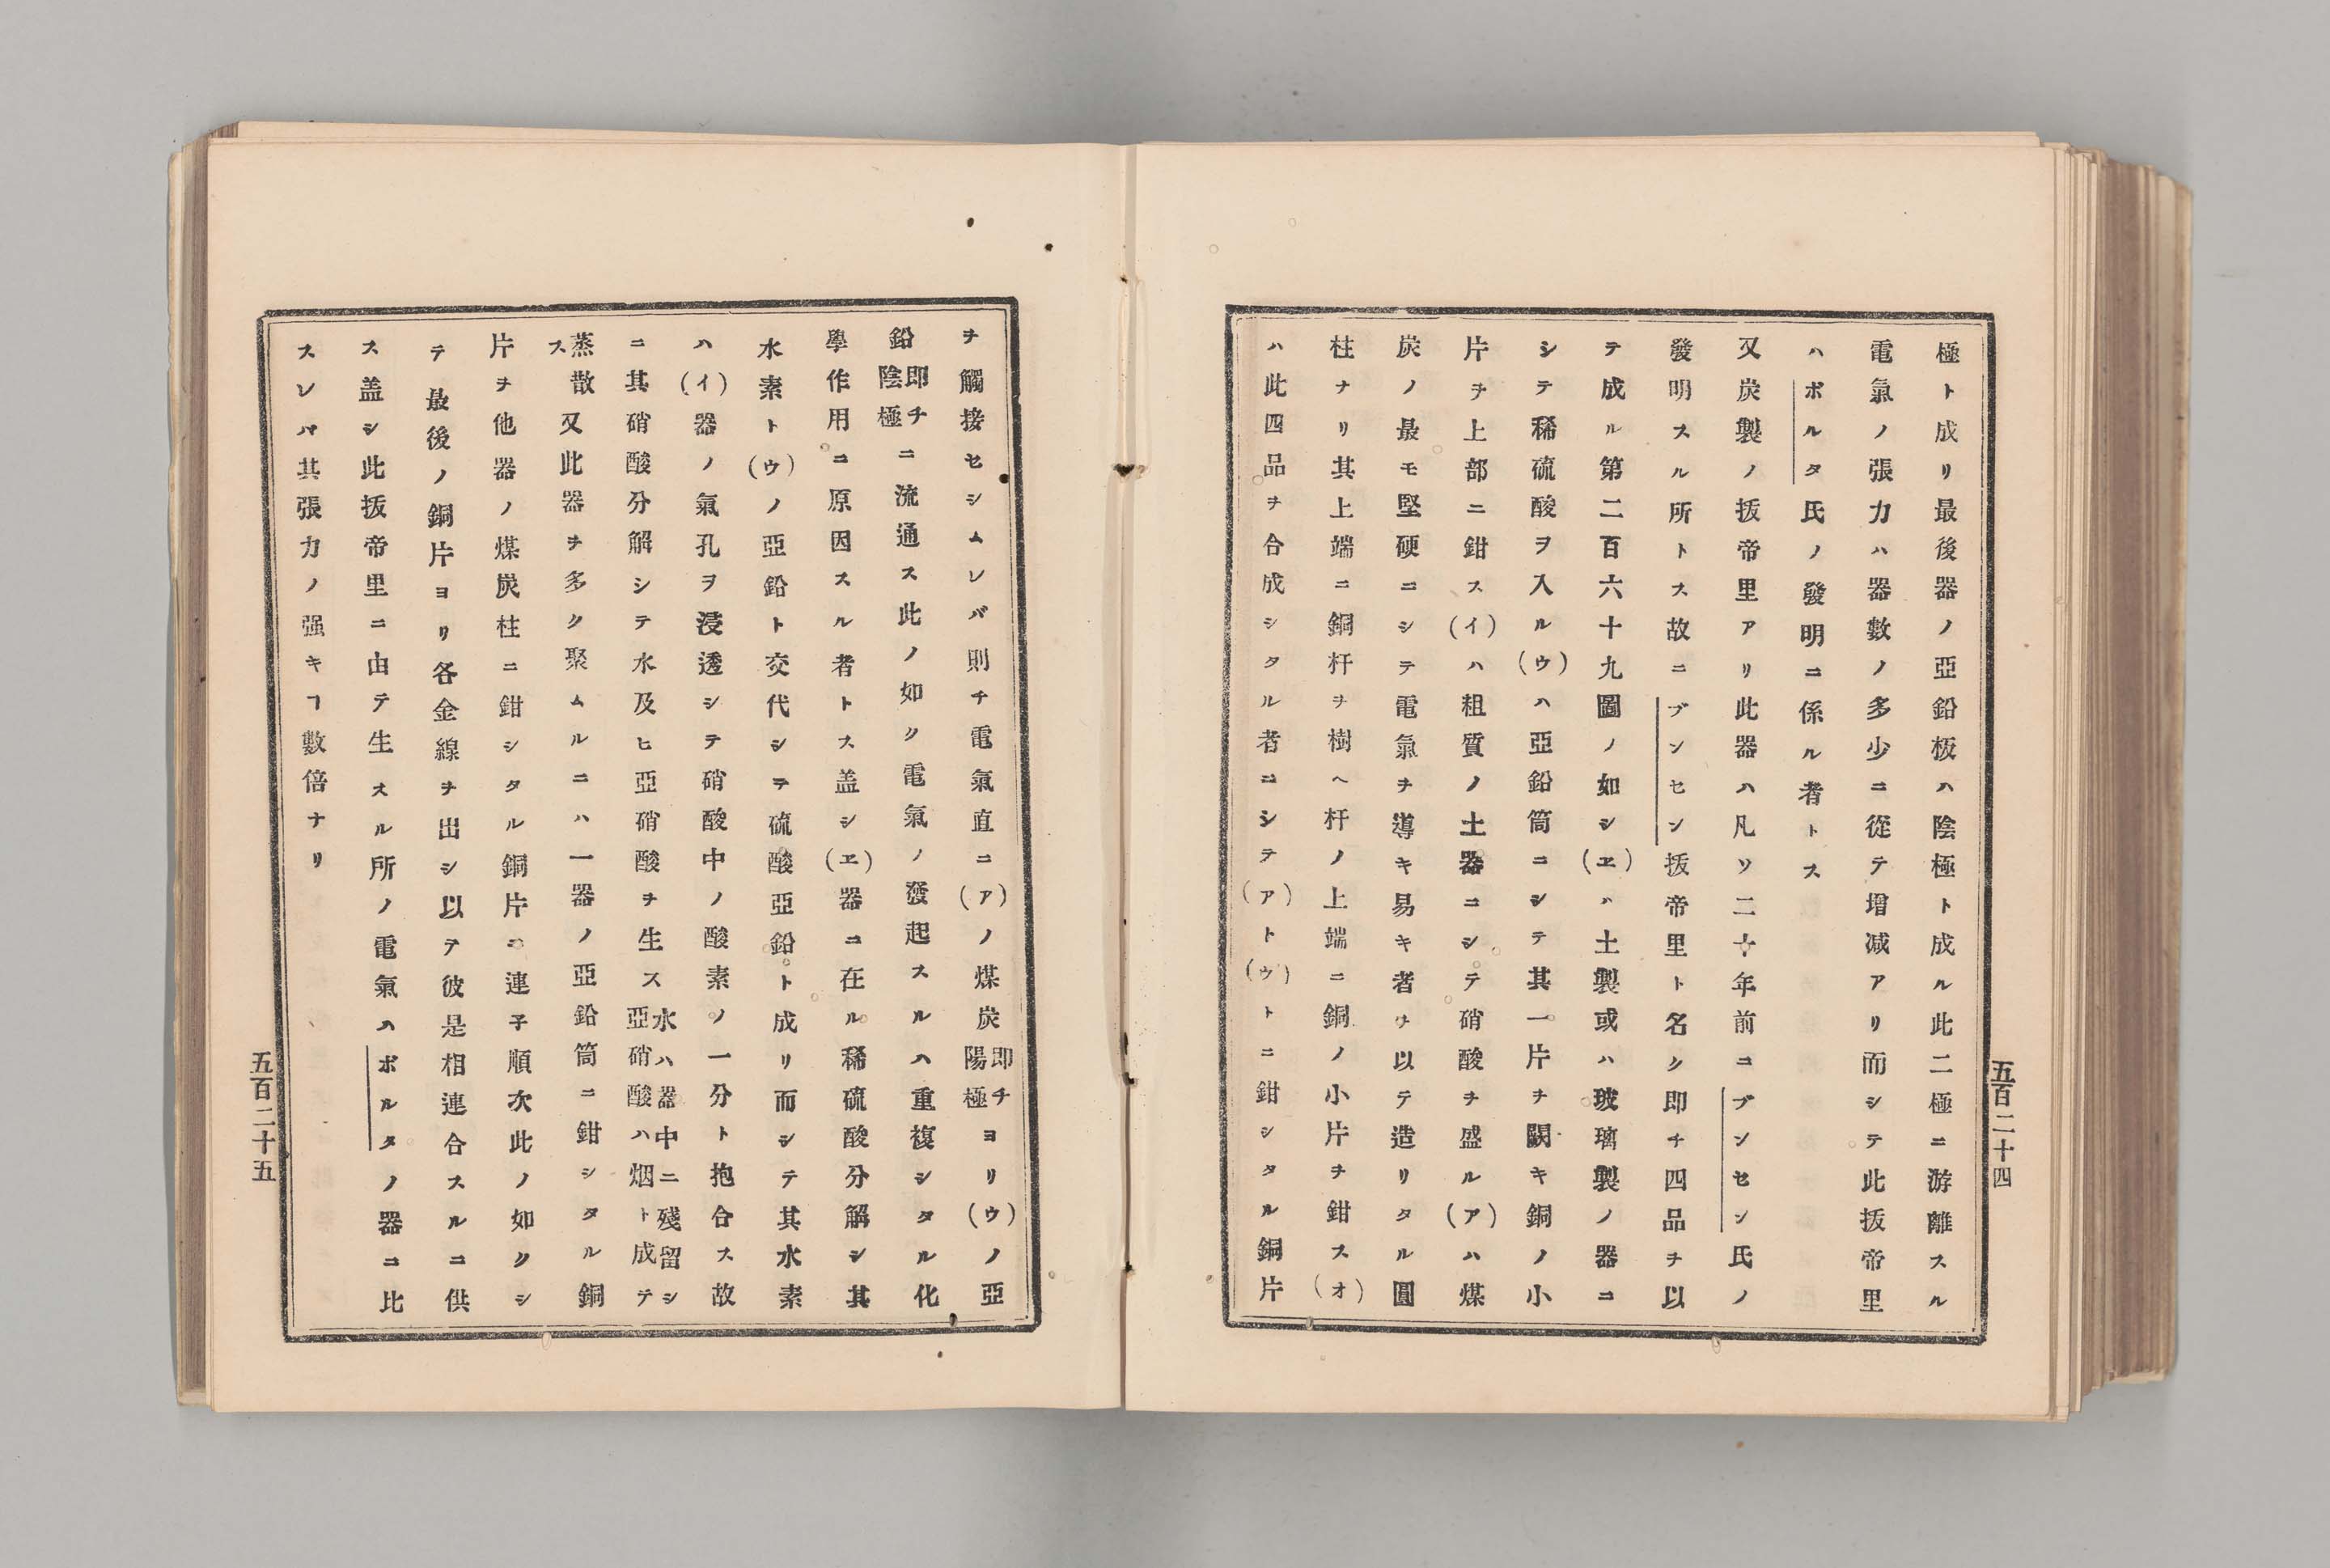 極ト成リ最後器ノ亞鉛板ハ陰極ト成ル此二極ニ游離スル
電氣ノ張力ハ器數ノ多少ニ從テ增減アリ而シテ此㧞帝里
ハボルタ氏ノ發明ニ係ル者トス
又炭製ノ㧞帝里アリ此器ハ凡ソ二十年前ニブンセン氏ノ
發明スル所トス故ニブンセン㧞帝里ト名ク即チ四品ヲ以
テ成ル第二百六十九圖ノ如シ(ヱ)ハ土製或ハ玻璃製ノ器ニ
シテ稀硫酸ヲ入ル(ウ)ハ亞鉛筒ニシテ其一片ヲ闕キ銅ノ小
片ヲ上部ニ鉗ス(イ)ハ粗質ノ土器ニシテ硝酸ヲ盛ル(ア)ハ煤
炭ノ最モ堅硬ニシテ電氣ヲ導キ易キ者ヲ以テ造リタル圓
柱ナリ其上端ニ銅杆ヲ樹ヘ杆ノ上端ニ銅ノ小片ヲ鉗ス(オ)
ハ此四品ヲ合成シタル者ニシテ(ア)ト(ウ)トニ鉗シタル銅片
五百二十四
ヲ觸接セシムレバ則チ電氣直ニ(ア)ノ煤炭即チ陽極ヨリ(ウ)ノ亞
鉛即チ陰極ニ流通ス此ノ如ク電氣ノ發起スルハ重複シタル化
學作用ニ原因スル者トス盖シ(ヱ)器ニ在ル稀硫酸分解シ其
水素ト(ウ)ノ亞鉛ト交代シテ硫酸亞鉛ト成リ而シテ其水素
ハ(イ)器ノ氣孔ヲ浸透シテ硝酸中ノ酸素ノ一分ト抱合ス故
ニ其硝酸分解シテ水及ヒ亞硝酸ヲ生ス水ハ器中ニ殘留シ亞硝酸ハ烟ト成テ
蒸散ス又此器ヲ多ク聚ムルニハ一器ノ亞鉛筒ニ鉗シタル銅
片ヲ他器ノ煤炭柱ニ鉗シタル銅片ニ連子順次此ノ如クシ
テ最後ノ銅片ヨリ各金線ヲ出シ以テ彼是相連合スルニ供
ス盖シ此㧞帝里ニ由テ生スル所ノ電氣ハボルタノ器ニ比
スレバ其張力ノ强キヿ數倍ナリ
五百二十五